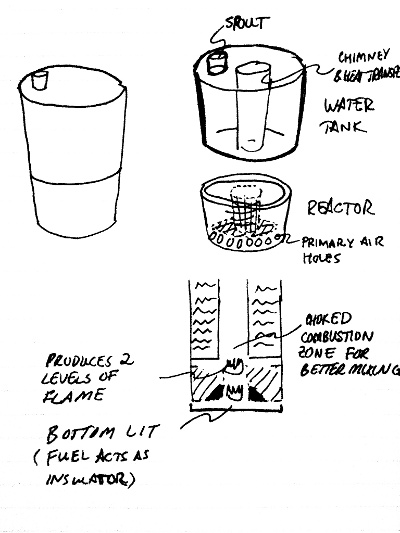 SPOUT
CHIMNEY
& HEAT TRANSFE
WATER
TANK
REACTOR
PRIMARY AIR
HOLES
CHOKED
COMBUSTION
ZONE FOR
BETTER MIXING
PRODUCES 2
LEVELS OF
FLAME
BOTTOM LIT
(FUEL ACTS AS
INSULATOR)